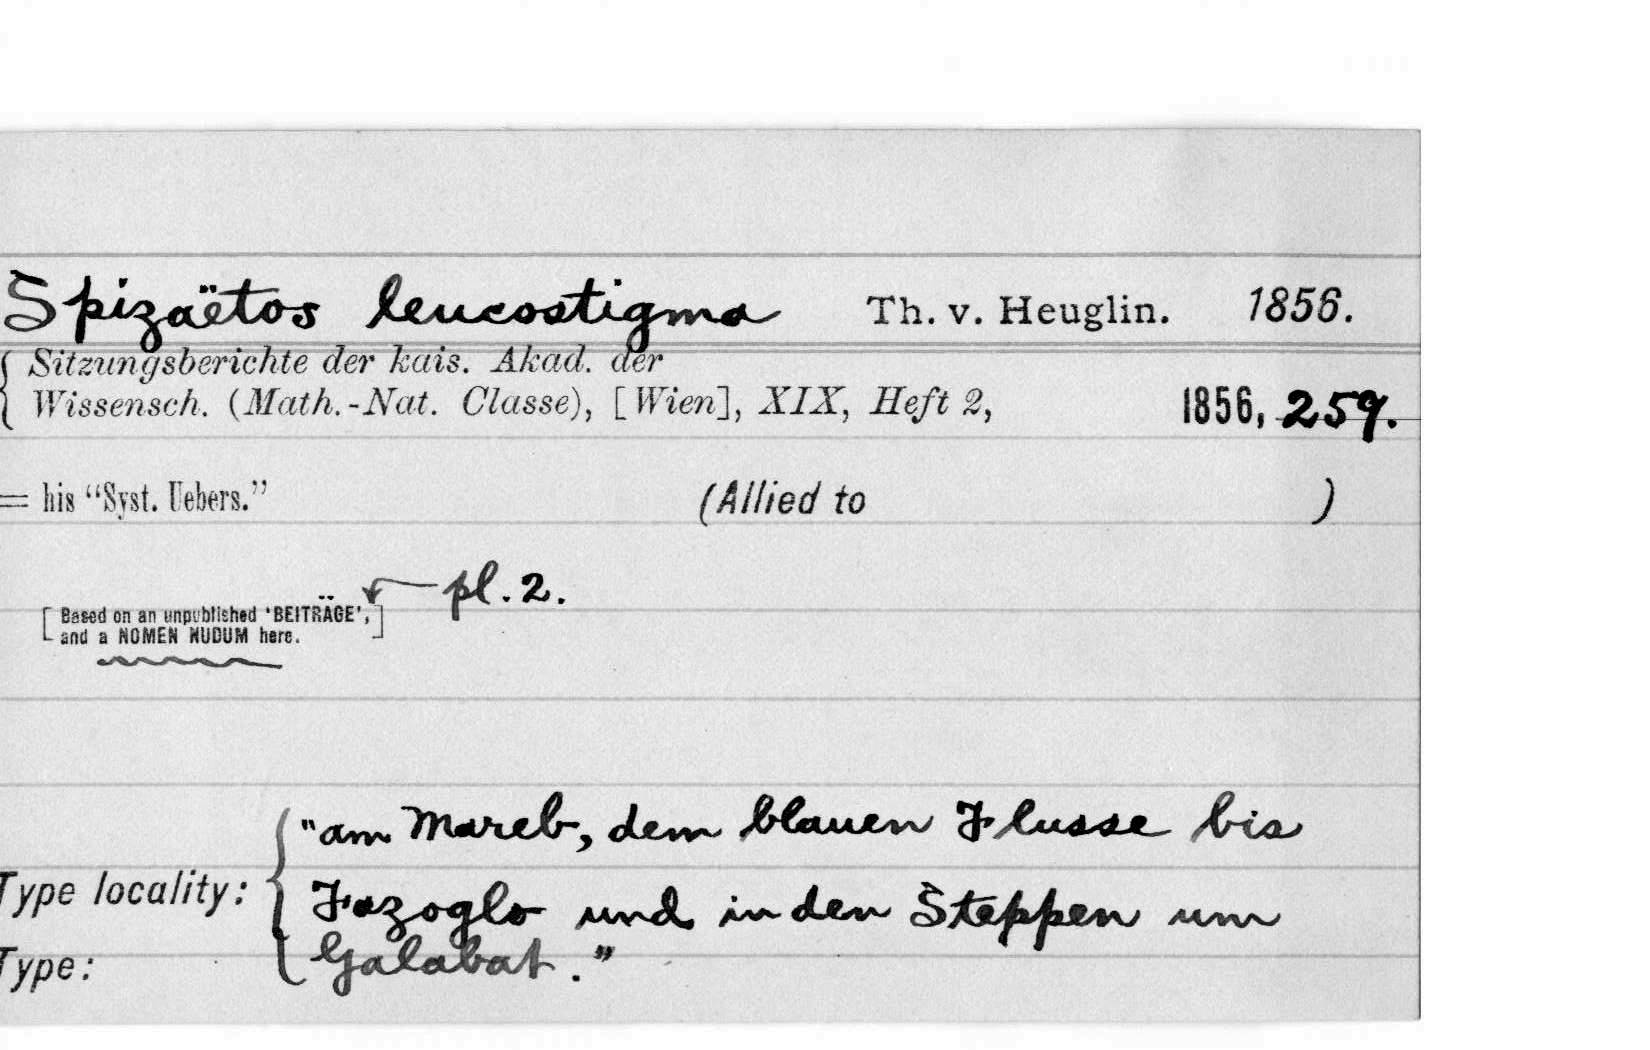 Spizaëtos leucostigma Th. v. Heuglin. 1856.
{ Sitzungsberichte der kais. Akad. der
Wissensch. (Math.-Nat. Classe), [Wien], XIX, Heft 2, 1856, 259.
= his “Syst. Uebers.” (Allied to )
pl. 2.
[Based on an unpublished ‘BEITRÄGE’,
and a NOMEN NUDUM here.]
"am Mareb, dem blauen Flusse bis
Type locality: { Fazoglo und in den Steppen um
Type: Galabat."